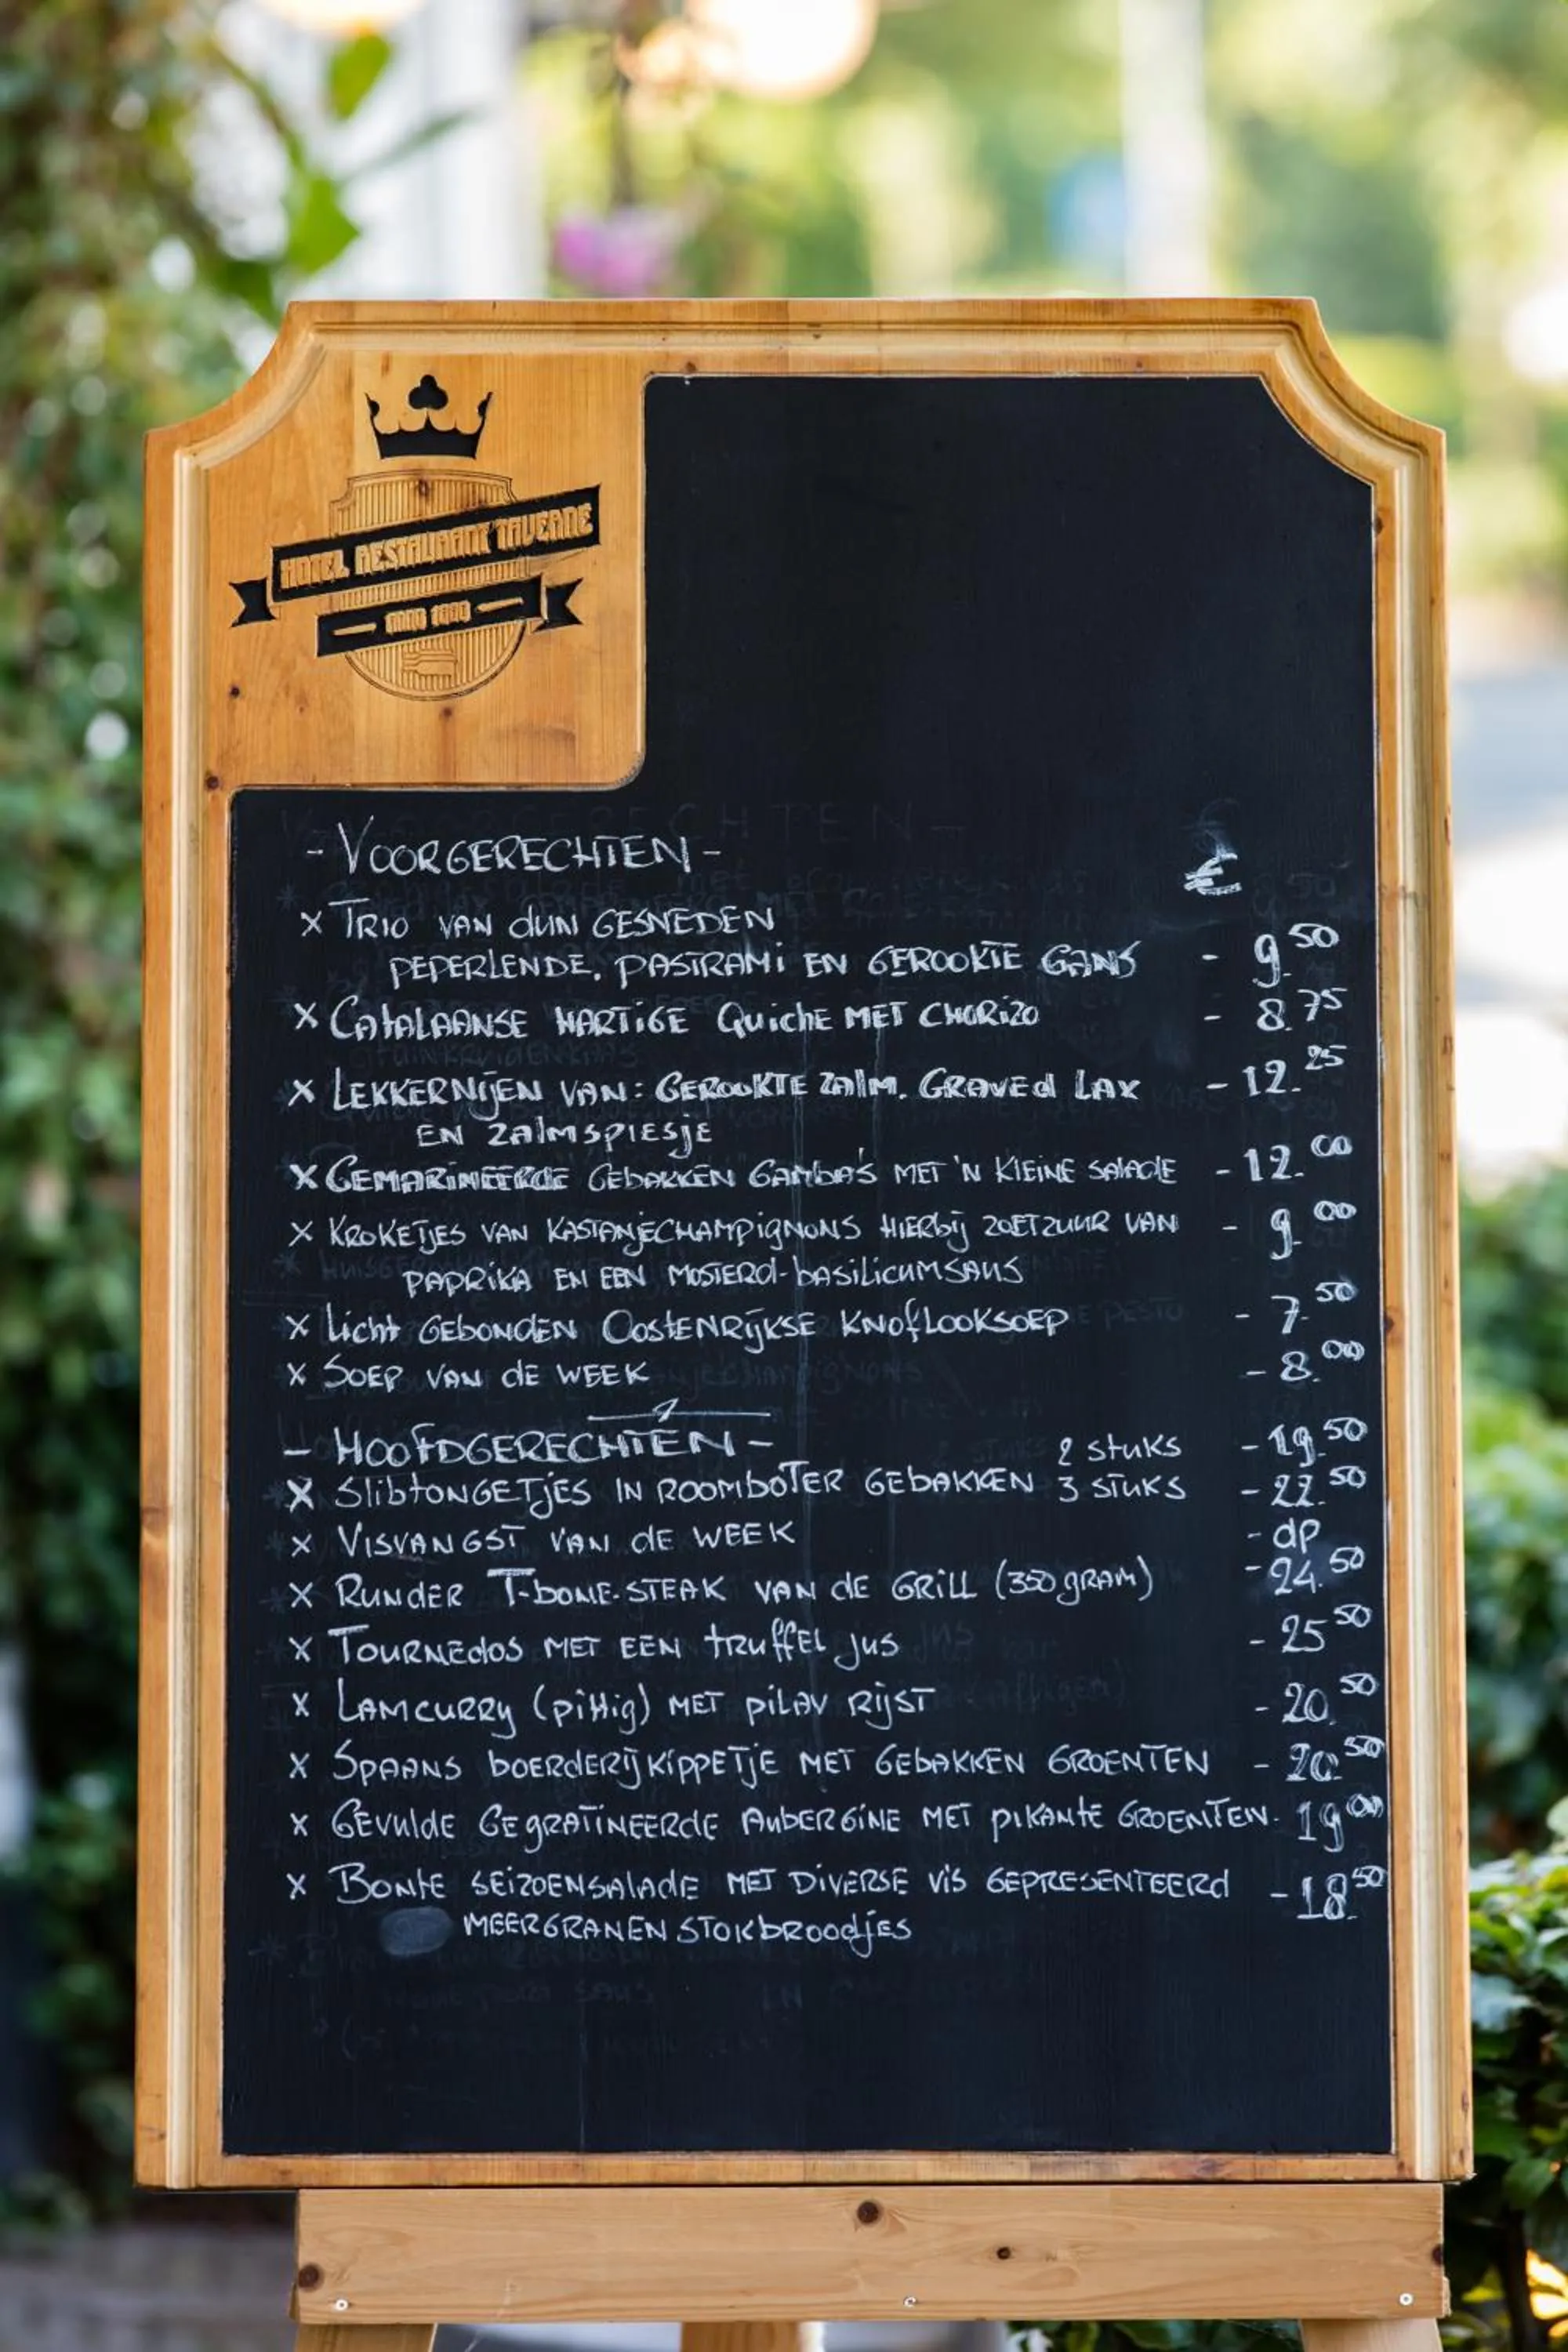 HOTEL RESTAURANT TAVERNE
- VOORGERECHTEN - €
x TRIO VAN dUN GESNEDEN
PEPERLENDE, PASTRAMi EN GEROOKTE GANS - 9.50
x CATALAANSE HARTIGE QuichE MET CHORIZO - 8.75
x LEKKERNIJEN VAN: GEROOKTE ZAlM, GRAVEd LAX - 12.25
EN ZAlMSPIESjE
x GEMARINEERDE GEBAKKEN GAMBA'S MET 'N KlEINE SALADE - 12.00
x KROKETJES VAN KASTANJECHAMPIGNONS HIERBIJ ZOETZUUR VAN - 9.00
PAPRIKA EN EEN MOSTERd-bASILICUMSAUS
x Licht GEBONDEN OOSTENRIJKSE KNOfLOOKSOEP - 7.50
x SOEP VAN dE WEEK - 8.00
- HOOfDGERECHTEN - 2 STUKS - 19.50
x SlibTONGETjES IN ROOMBOTER GEBAKKEN 3 STUKS - 22.50
x VISVANGST VAN dE WEEK - dp
x RUNDER T-bONE-STEAK VAN dE GRILL (350 gRAM) - 24.50
x TOURNEdOS MET EEN tRuffEL jus - 25.50
x LAMCURRY (pittig) MET pilAV RIJST - 20.50
x SPAANS bOERdERIJKIPPETJE MET GEbAKKEN GROENTEN - 20.50
x GEVulDE GEgRATINEERdE AUBERGINE MET piKANTE GROENTEN - 19.00
x BONTE SEIZOENSALADE MET DIVERSE VIS GEPRESENTEERd - 18.50
MEERGRANEN STOKbROOdjES